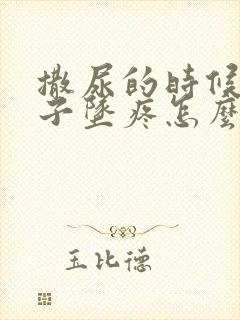 撒尿的時候
子墜疼怎麼
玉比德